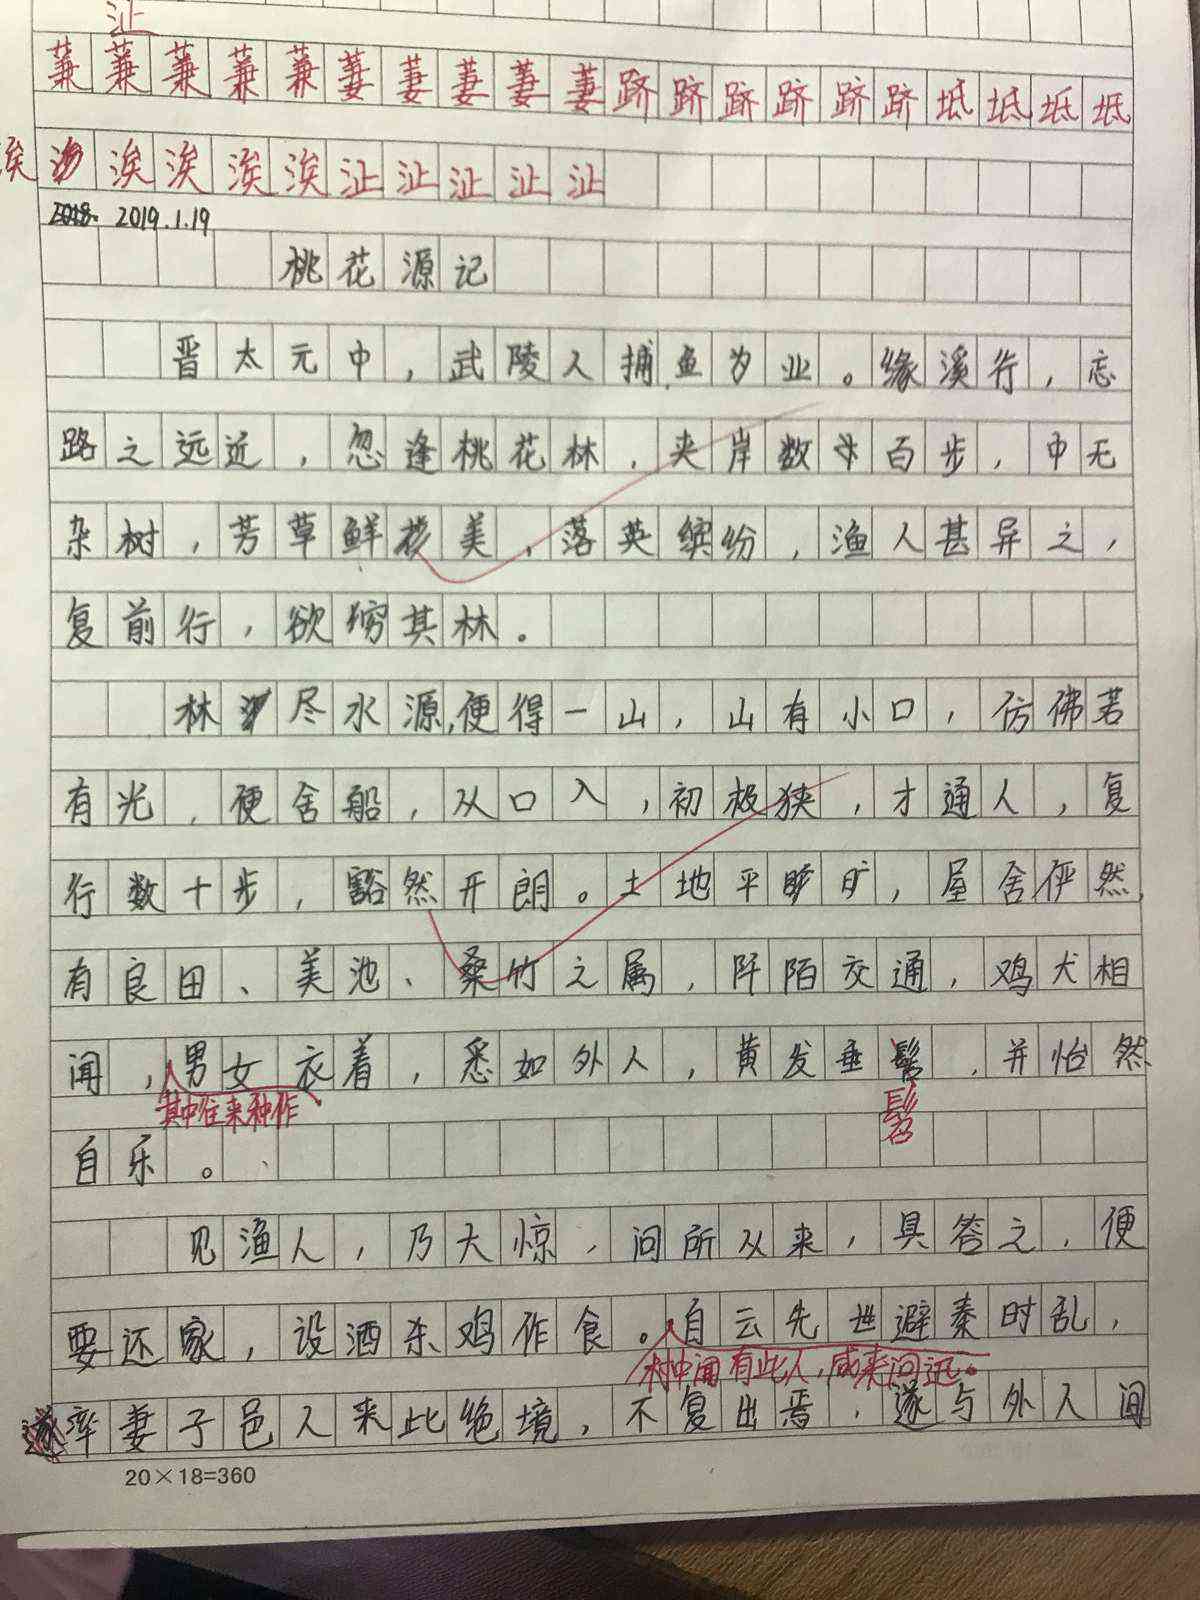 沚
蒹蒹蒹蒹蒹萋萋萋萋萋跻跻跻跻跻跻坻坻坻坻
涘涘涘涘涘沚沚沚沚沚
2018. 2019.1.19
桃花源记
晋太元中，武陵人捕鱼为业。缘溪行，忘
路之远近，忽逢桃花林，夹岸数百步，中无
杂树，芳草鲜美，落英缤纷，渔人甚异之，
复前行，欲穷其林。
林尽水源，便得一山，山有小口，仿佛若
有光，便舍船，从口入，初极狭，才通人，复
行数十步，豁然开朗。土地平旷旷，屋舍俨然，
有良田、美池、桑竹之属，阡陌交通，鸡犬相
闻，男女衣着，悉如外人，黄发垂髫，并怡然
其中往来种作 髫
自乐。
见渔人，乃大惊，问所从来，具答之，便
要还家，设酒杀鸡作食。自云先世避秦时乱，
村中闻有此人，咸来问讯。
率妻子邑人来此绝境，不复出焉，遂与外人间
20×18=360